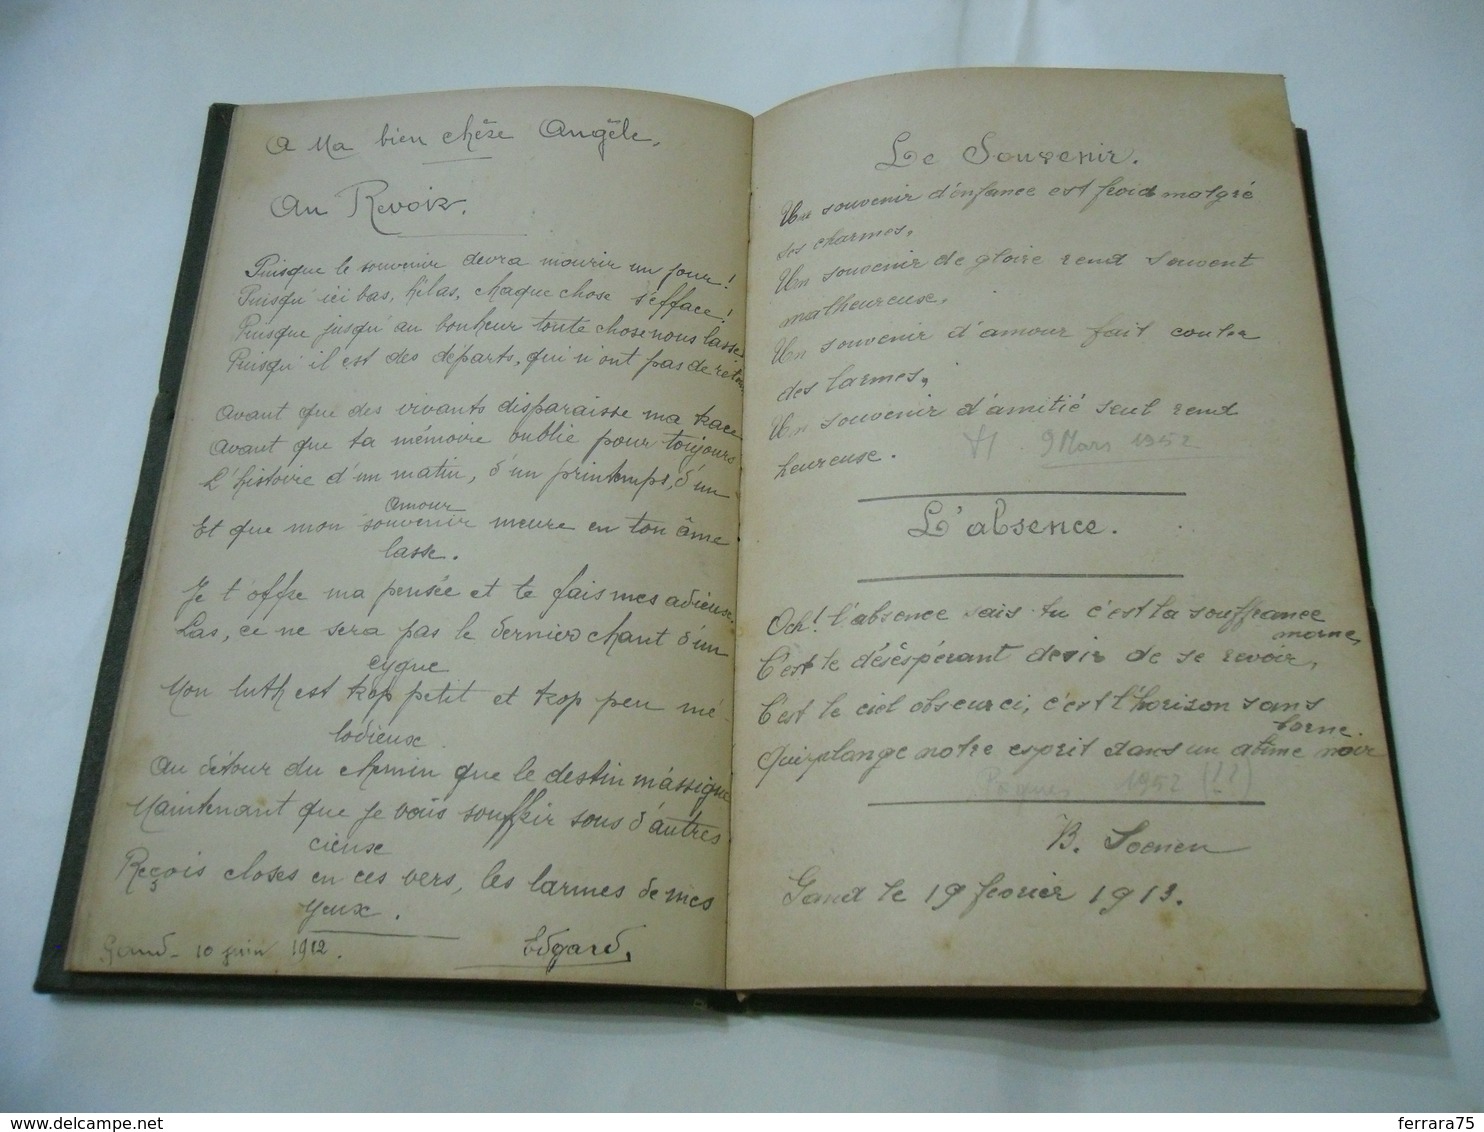 A Ma bien chère Angèle.
Au Revoir.
Puisque le souvenir devra mourir un jour!
Puisqu'ici bas, hélas, chaque chose s'efface!
Puisque jusqu'au bonheur toute chose nous lasse
Puisqu'il est des départs, qui n'ont pas de retour
Avant que des vivants disparaisse ma trace
Avant que ta mémoire oublie pour toujours
L'histoire d'un matin, d'un printemps, d'un
amour
Et que mon souvenir meure en ton âme
lasse.
Je t'offre ma pensée et te fais mes adieux.
Las, ce ne sera pas le dernier chant d'un
cygne
Mon luth est trop petit et trop peu mé-
lodieux
Au détour du chemin que le destin m'assigne
Maintenant que je vais souffrir sous d'autres
cieux
Reçois closes en ces vers, les larmes de mes
yeux.
Gand - 10 juin 1912.
Edgard.
Le Souvenir.
Un souvenir d'enfance est froid malgré
ses charmes,
Un souvenir de gloire rend souvent
malheureuse,
Un souvenir d'amour fait couler
des larmes,
Un souvenir d'amitié seul rend
heureuse.
9 Mars 1952
L'absence.
Och! l'absence sais-tu c'est la souffrance
morne,
C'est le désèspérant desir de se revoir,
C'est le ciel obscurci, c'est l'horison sans
borne.
Qui plonge notre esprit dans un abîme noir
Pâques 1952 (??)
B. Soenen
Gand le 19 fevrier 1913.
ferrara75